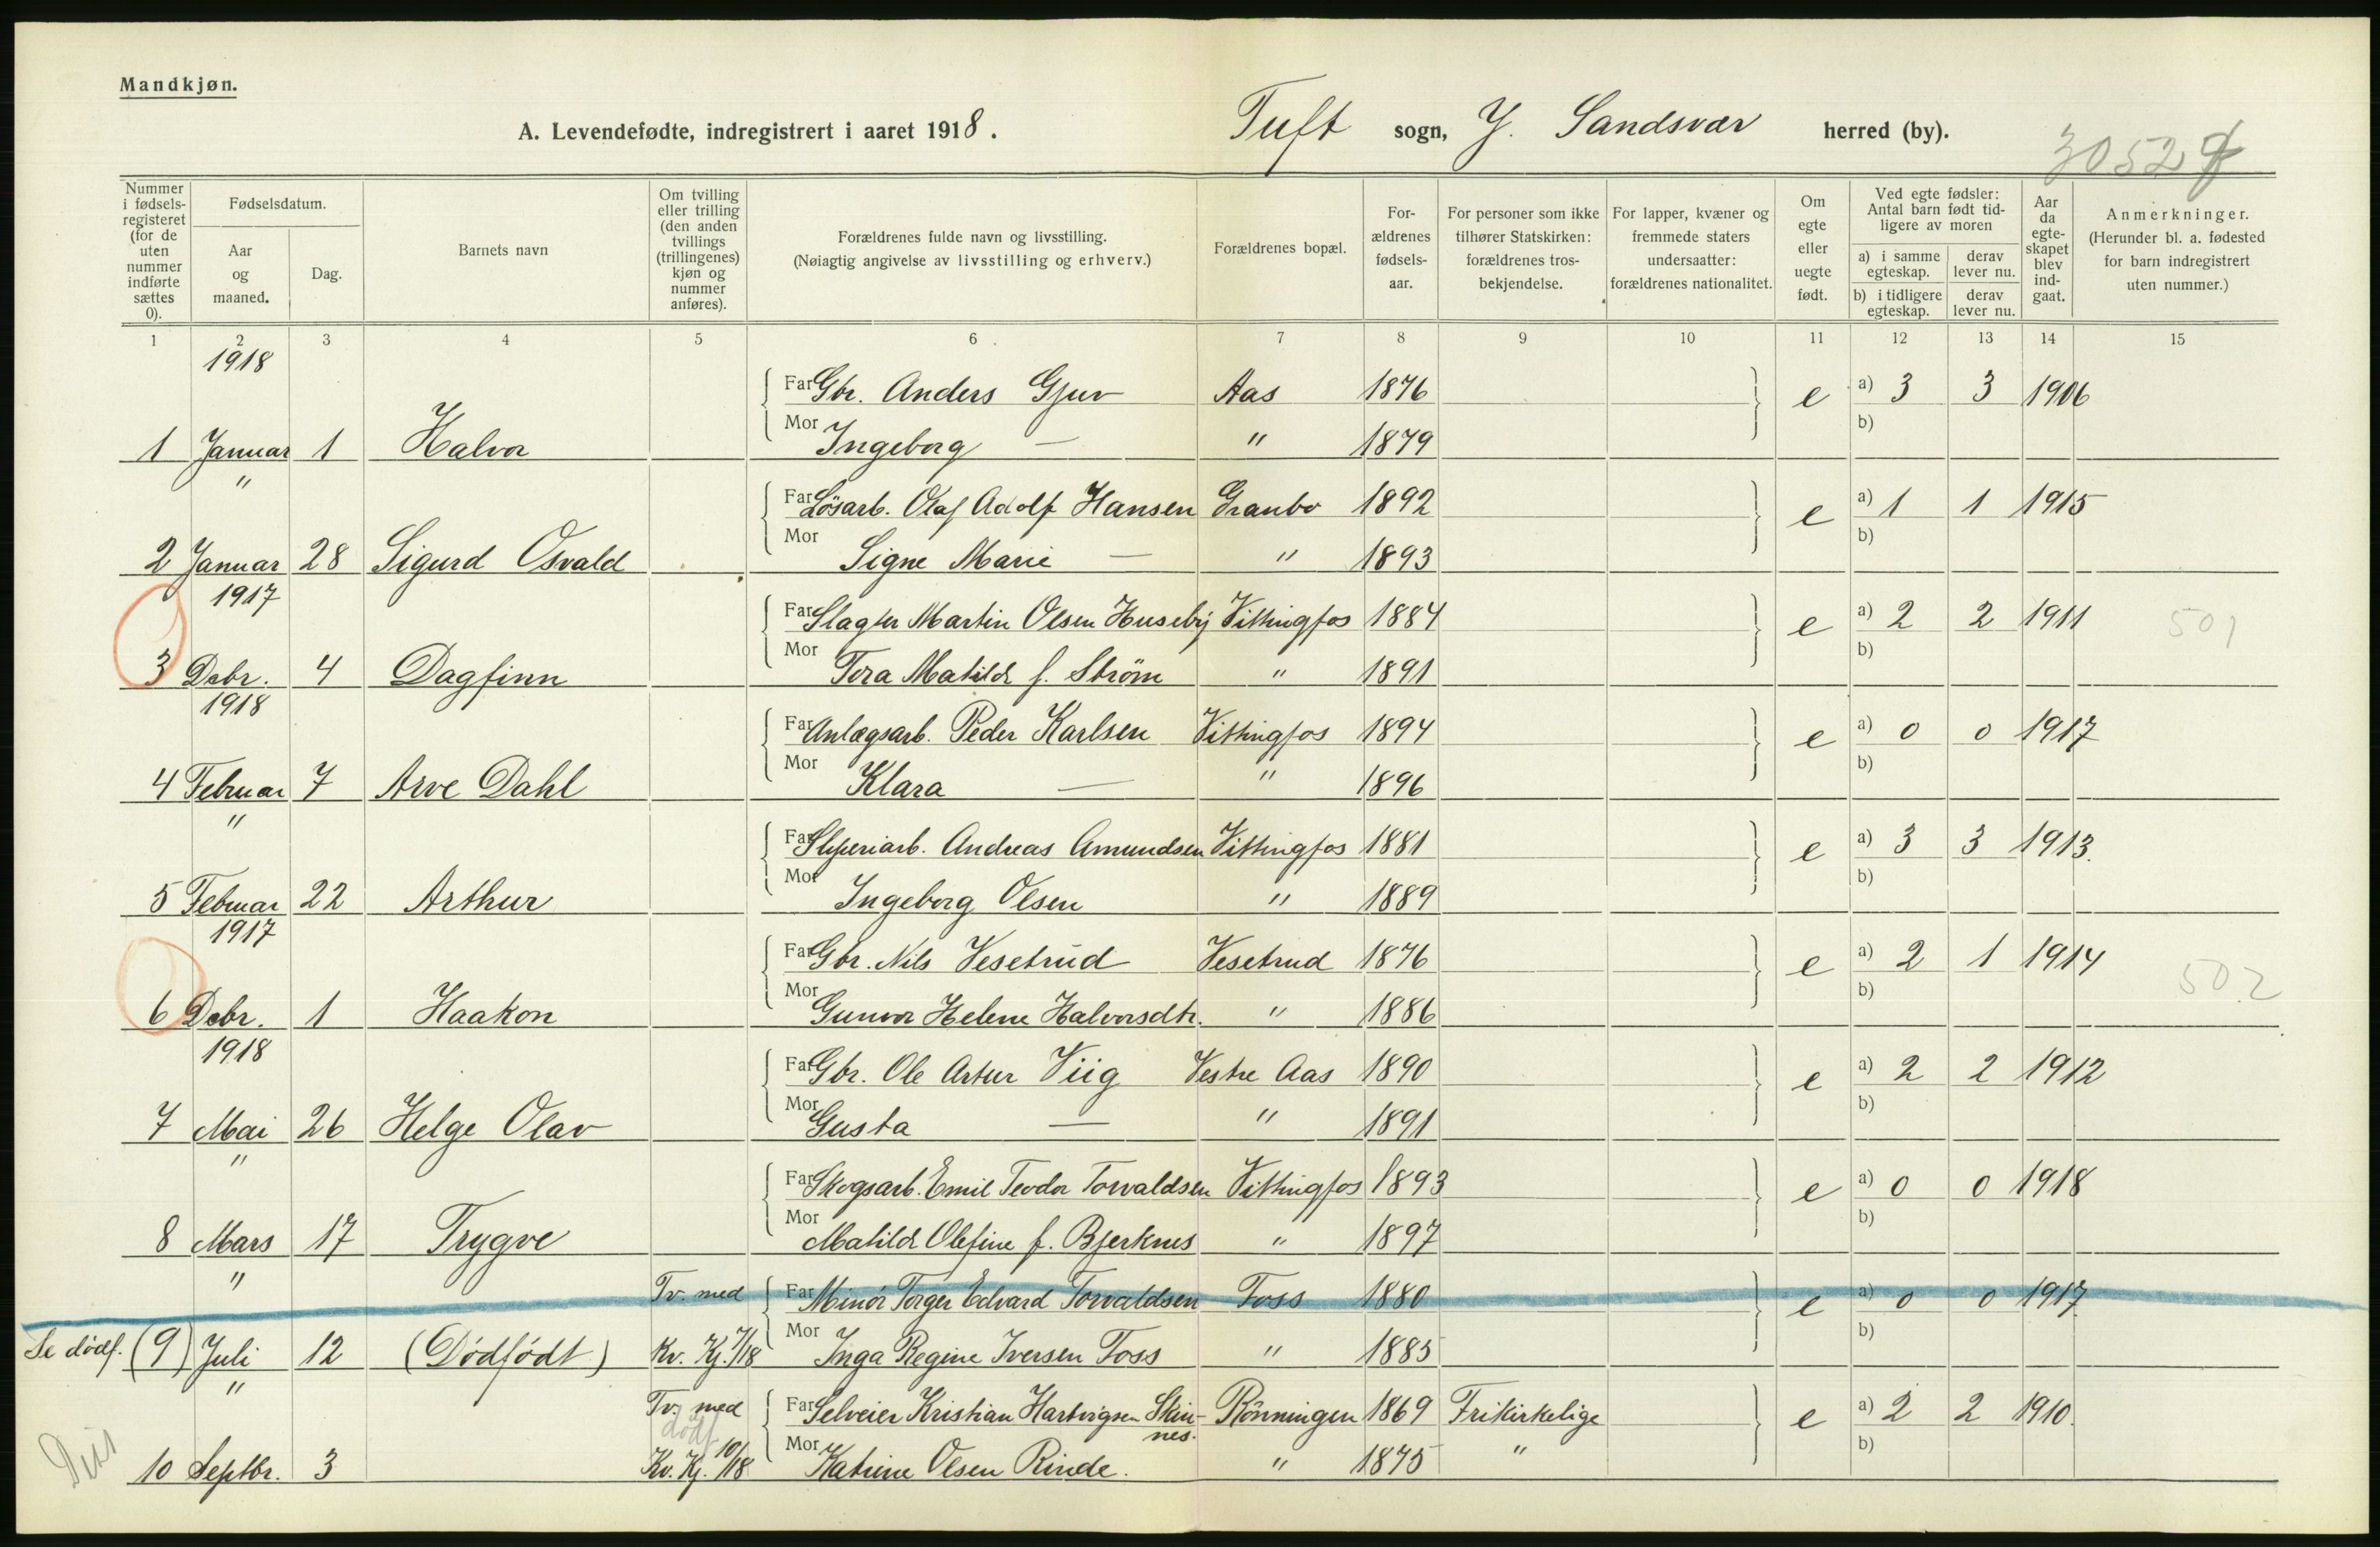 Mandkjøn.
A. Levendefødte, indregistrert i aaret 1918. Tuft sogn, Y. Sandsvær herred (by).
3052
Nummer i fødselsregisteret (for de uten nummer indførte sættes 0).
Fødselsdatum.
Aar og maaned.
Dag.
Barnets navn
Om tvilling eller trilling (den anden tvillings (trillingenes) kjøn og nummer anføres).
Forældrenes fulde navn og livsstilling.
(Nøiagtig angivelse av livsstilling og erhverv.)
Forældrenes bopæl.
Forældrenes fødselsaar.
For personer som ikke tilhører Statskirken: forældrenes trosbekjendelse.
For lapper, kvæner og fremmede staters undersaatter: forældrenes nationalitet.
Om egte eller uegte født.
Ved egte fødsler: Antal barn født tidligere av moren
a) i samme egteskap. derav lever nu.
b) i tidligere egteskap. derav lever nu.
Aar da egteskapet blev indgaat.
Anmerkninger.
(Herunder bl. a. fødested for barn indregistrert uten nummer.)
1 2 3 4 5 6 7 8 9 10 11 12 13 14 15
1918
Far Gbr. Anders Gjuv Aas 1876 e a) 3 3 1906
b)
1 Januar 1 Halvor Mor Ingeborg — " 1879
"
Far Løsarb. Olaf Adolf Hansen Granbo 1892 e a) 1 1 1915
b)
2 Januar 28 Sigurd Osvald Mor Signe Marie — " 1893
1917
Far Slagter Martin Olsen Huseby Vittingfos 1884 e a) 2 2 1911 501
b)
3 Debr. 4 Dagfinn Mor Tora Matilde f. Strøm " 1891
1918
Far Anlægsarb. Peder Karlsen Vittingfos 1894 e a) 0 0 1917
b)
4 Februar 7 Arve Dahl Mor Klara — " 1896
"
Far Sliperiarb. Andreas Amundsen Vittingfos 1881 e a) 3 3 1913.
b)
5 Februar 22 Arthur Mor Ingeborg Olsen " 1889
1917
Far Gbr. Nils Vesetrud Vesetrud 1876 e a) 2 1 1914 502
b)
6 Debr. 1 Haakon Mor Gunvor Helene Halvorsdtr. " 1886
1918
Far Gbr. Ole Artur Viig Vestre Aas 1890 e a) 2 2 1912
b)
7 Mai 26 Helge Olav Mor Gusta — " 1891
"
Far Skogsarb. Emil Teodor Torvaldsen Vittingfos 1893 e a) 0 0 1918
b)
8 Mars 17 Trygve Mor Matilde Olefine f. Bjerknes " 1897
"
Tv. med Far Minör Torger Edvard Torvaldsen Foss 1880 e a) 0 0 1917
b)
Se dödf. (9) Juli 12 (Dödfödt) Kv. Kj. 7/18 Mor Inga Regine Iversen Foss " 1885
"
Tv. med Far Selveier Kristian Hartvigsen Skinnes. Rönningen 1869 Frikirkelige e a) 2 2 1910.
dödf b)
10 Septbr. 3 Kv. Kj. 10/18 Mor Katrine Olsen Rinde. " 1875 "